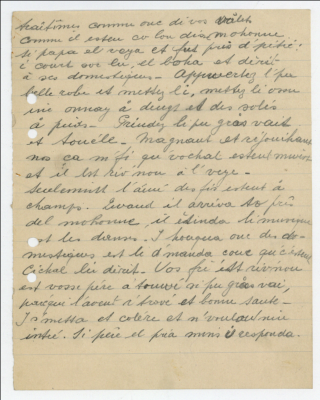 traitônnes comme onc di vos vâlets
comme il esteu co lon del mohonne
si papa el veya et fut pris d'pitié!
i' court sor lu, el boha et dérit
à ses domestiques – Appwertez l'pu
belle robe et mettez li, mettez li osou
ine onnay à deugt et des solés
à pieds. Prindez li pu gras vait
et touèle. Magnant et réjouihans
nos ça m' fi qui vochal esteut muwért
et il est riv'nou à l'veye –
Seulemint l'aîné des fis esteut à
champs. Qwand il arriva to près
del mohonne, il étinda li musique
et les danses. I houqua onc des do-
mestiques est li d'manda çou qu' c'esteut
Cichal lui dérit – Vos fré est riv'nou
est vosse père a touwé si pu gras vai,
paréque l'aveut r'trové et bonne santé –
I s'metta et colère et n'voulou nin
intré. Si père et pria mins i responda.